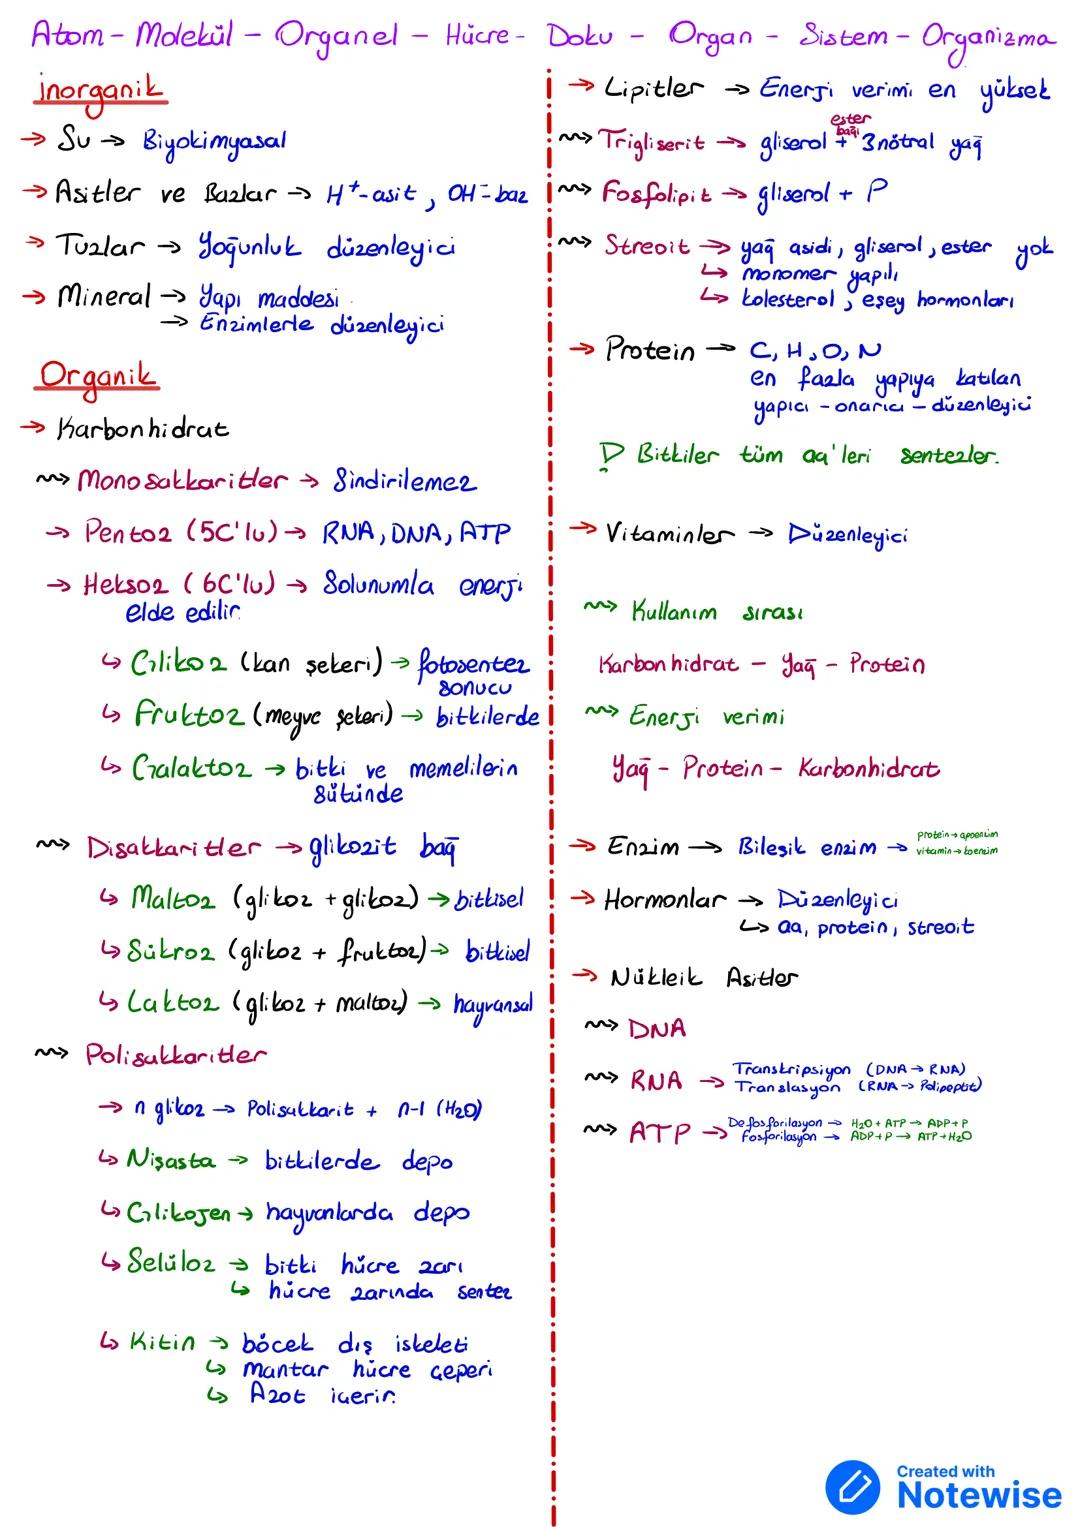 Atom - Molekül - Organel - Hücre - Doku - Organ - Sistem - Organizma
inorganik
→ Su → Biyokimyasal
→ Asitler ve Bazlar → H⁺-asit, OH⁻-baz
→ Tuzlar → Yoğunluk düzenleyici
→ Mineral → Yapı maddesi
→ Enzimlerle düzenleyici
Organik
→ Karbonhidrat
⇝ Monosakkaritler → Sindirilemez
→ Pentoz (5C'lu) → RNA, DNA, ATP
→ Heksoz (6C'lu) → Solunumla enerji
elde edilir.
↳ Glikoz (kan şekeri) → fotosentez
sonucu
↳ Fruktoz (meyve şekeri) → bitkilerde
↳ Galaktoz → bitki ve memelilerin
sütünde
⇝ Disakkaritler → glikozit bağ
↳ Maltoz (glikoz + glikoz) → bitkisel
↳ Sükroz (glikoz + fruktoz) → bitkisel
↳ Laktoz (glikoz + maltoz) → hayvansal
⇝ Polisakkaritler
→ n glikoz → Polisakkarit + n-1 (H₂O)
↳ Nişasta → bitkilerde depo
↳ Glikojen → hayvanlarda depo
↳ Selüloz → bitki hücre zarı
↳ hücre zarında sentez
↳ Kitin → böcek dış iskeleti
↳ mantar hücre çeperi
↳ Azot içerir.
→ Lipitler → Enerji verimi en yüksek
ester
bağı
⇝ Trigliserit → gliserol + 3 nötral yağ
⇝ Fosfolipit → gliserol + P
⇝ Streoit → yağ asidi, gliserol, ester yok
↳ monomer yapılı
↳ kolesterol, eşey hormonları
→ Protein → C, H, O, N
en fazla yapıya katılan
yapıcı - onarıcı - düzenleyici
Bitkiler tüm aa'leri sentezler.
→ Vitaminler → Düzenleyici
⇝ Kullanım sırası
Karbonhidrat - Yağ - Protein
⇝ Enerji verimi
Yağ - Protein - Karbonhidrat
→ Enzim → Bileşik enzim → protein → apoenzim
vitamin → koenzim
→ Hormonlar → Düzenleyici
↳ aa, protein, streoit
→ Nükleik Asitler
⇝ DNA
⇝ RNA → Transkripsiyon (DNA → RNA)
Translasyon (RNA → Polipeptit)
⇝ ATP → Defosforilasyon → H₂O + ATP → ADP + P
Fosforilasyon → ADP + P → ATP + H₂O
Created with
Notewise